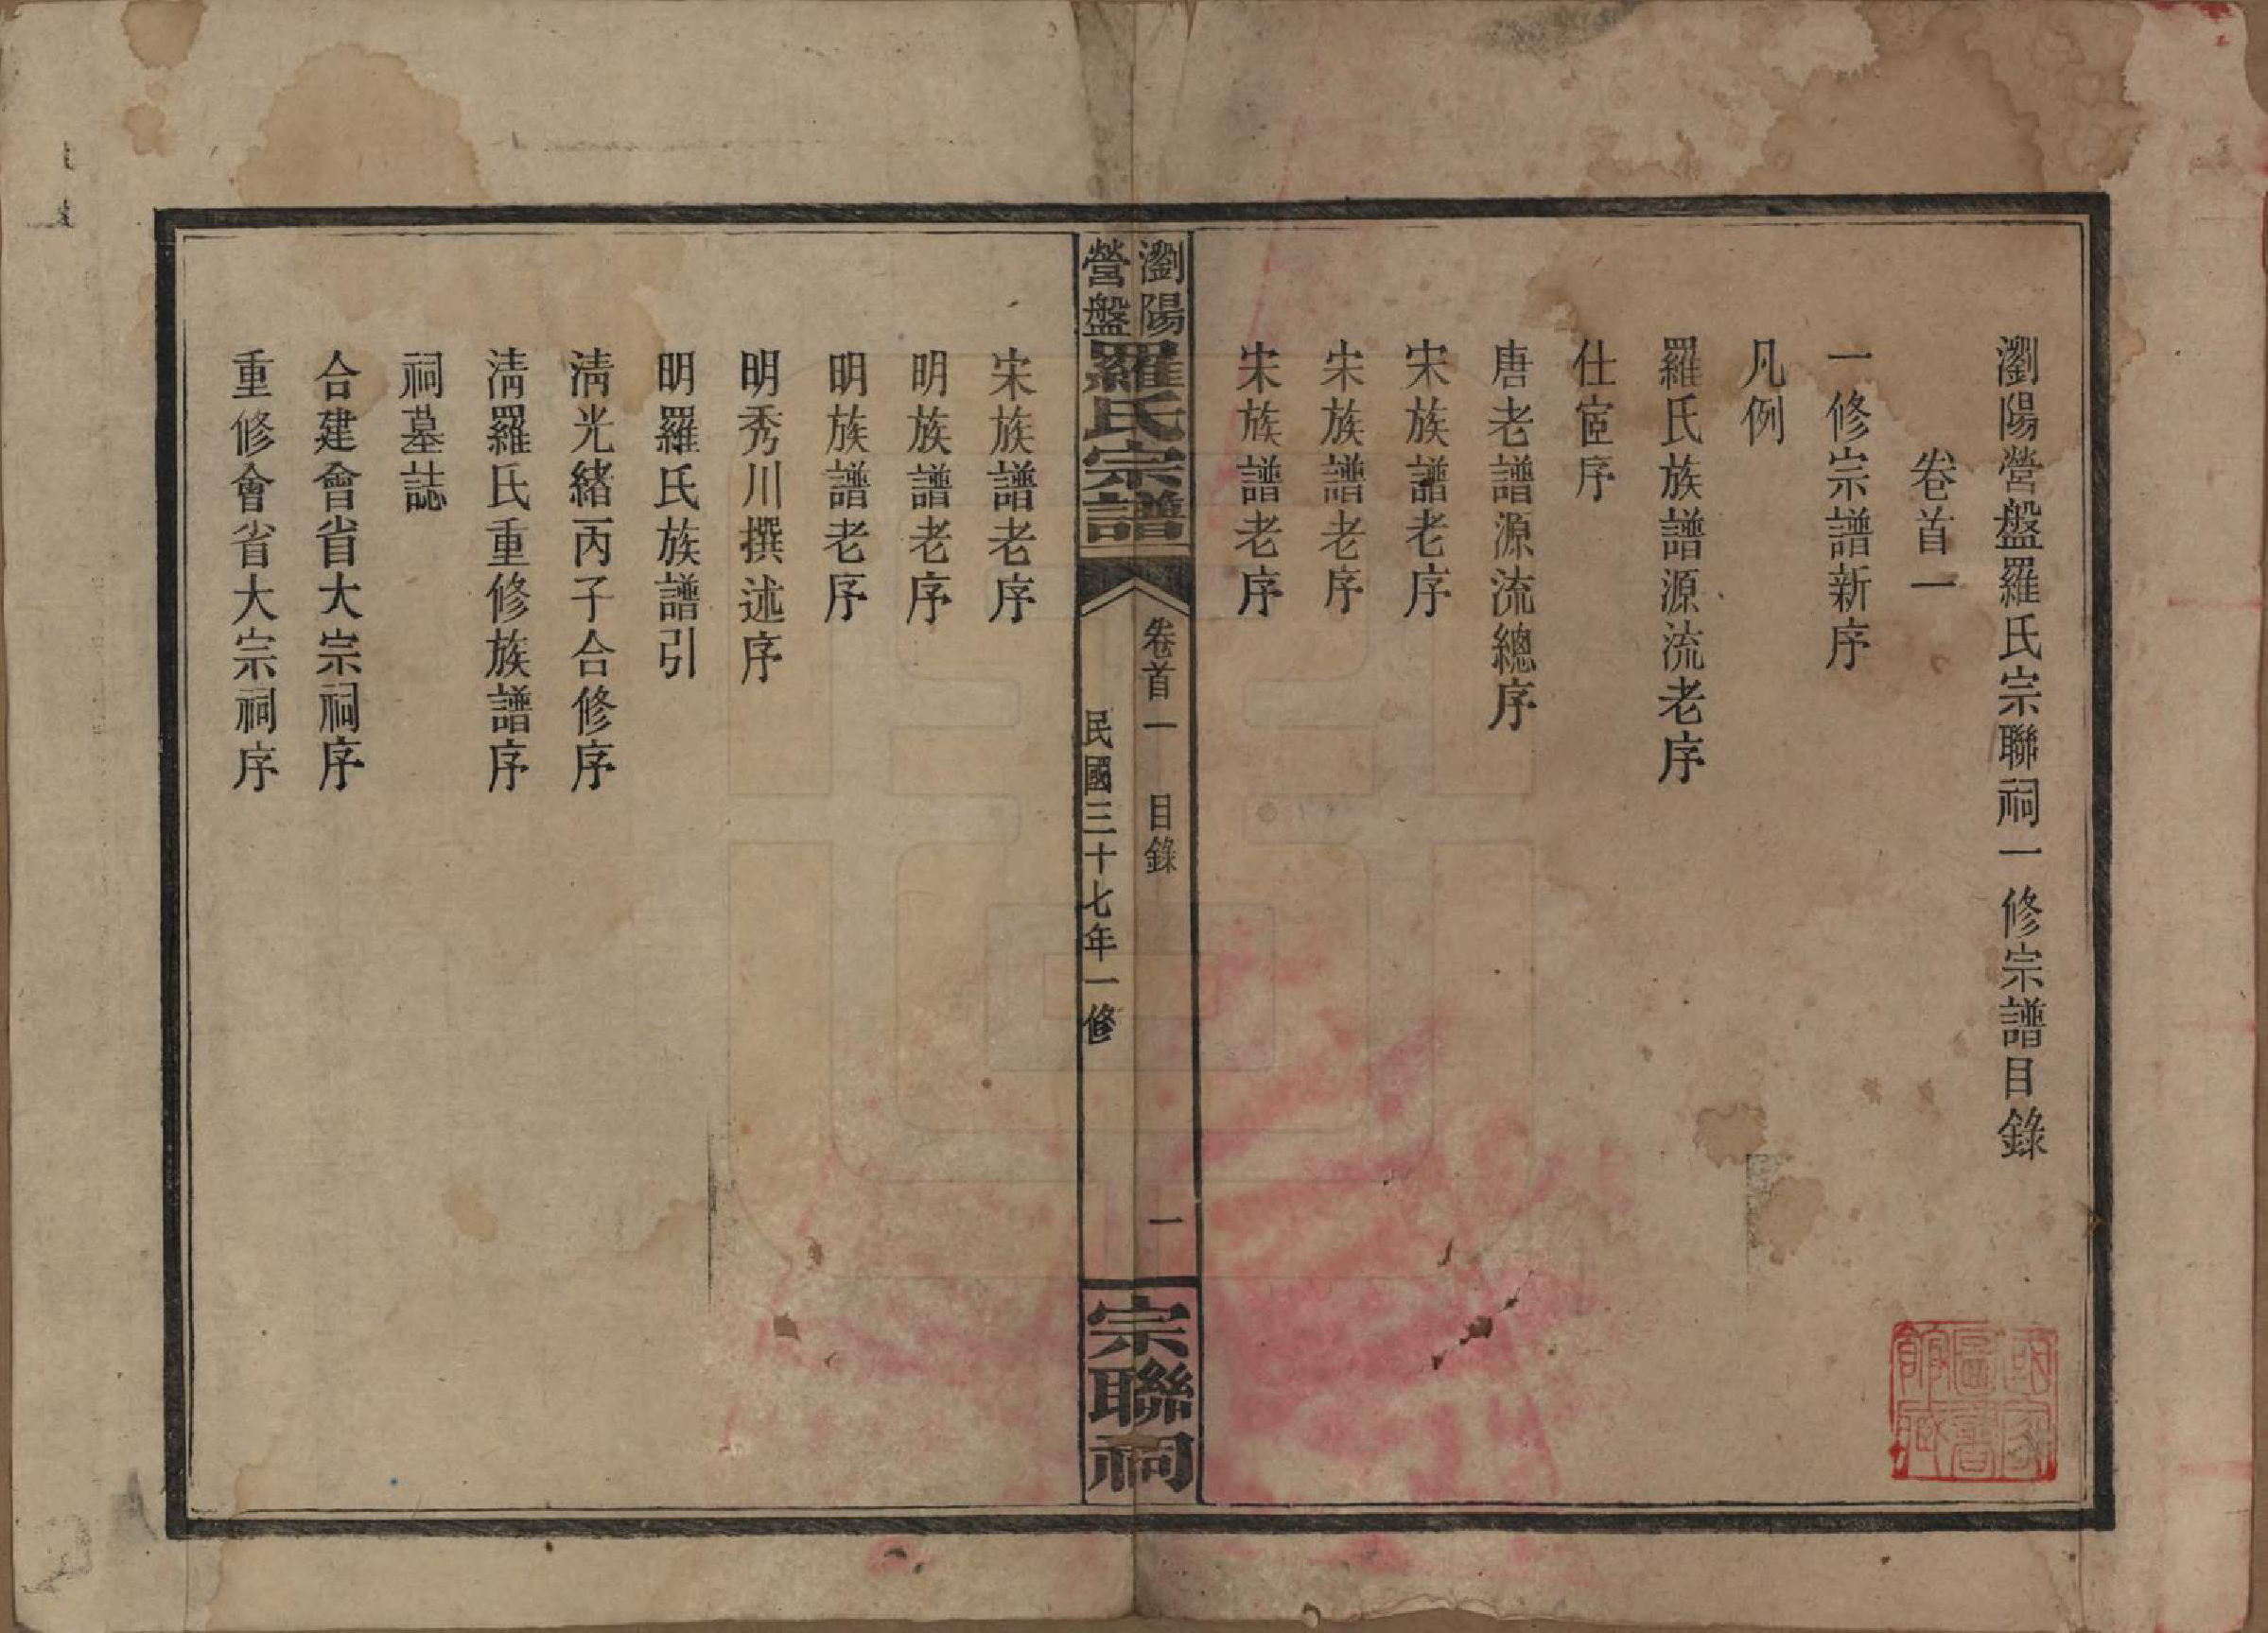 瀏陽營盤羅氏宗聯祠一修宗譜目錄
卷首一
一修宗譜新序
凡例
羅氏族譜源流老序
仕宦序
唐老譜源流總序
宋族譜老序
宋族譜老序
宋族譜老序
瀏陽
營盤
羅氏宗譜
卷首一 目錄
一
民國三十七年一修
宗聯祠
宋族譜老序
明族譜老序
明族譜老序
明秀川撰述序
明羅氏族譜引
清光緒丙子合修序
清羅氏重修族譜序
祠墓誌
合建會省大宗祠序
重修會省大宗祠序
國家
圖書
館藏